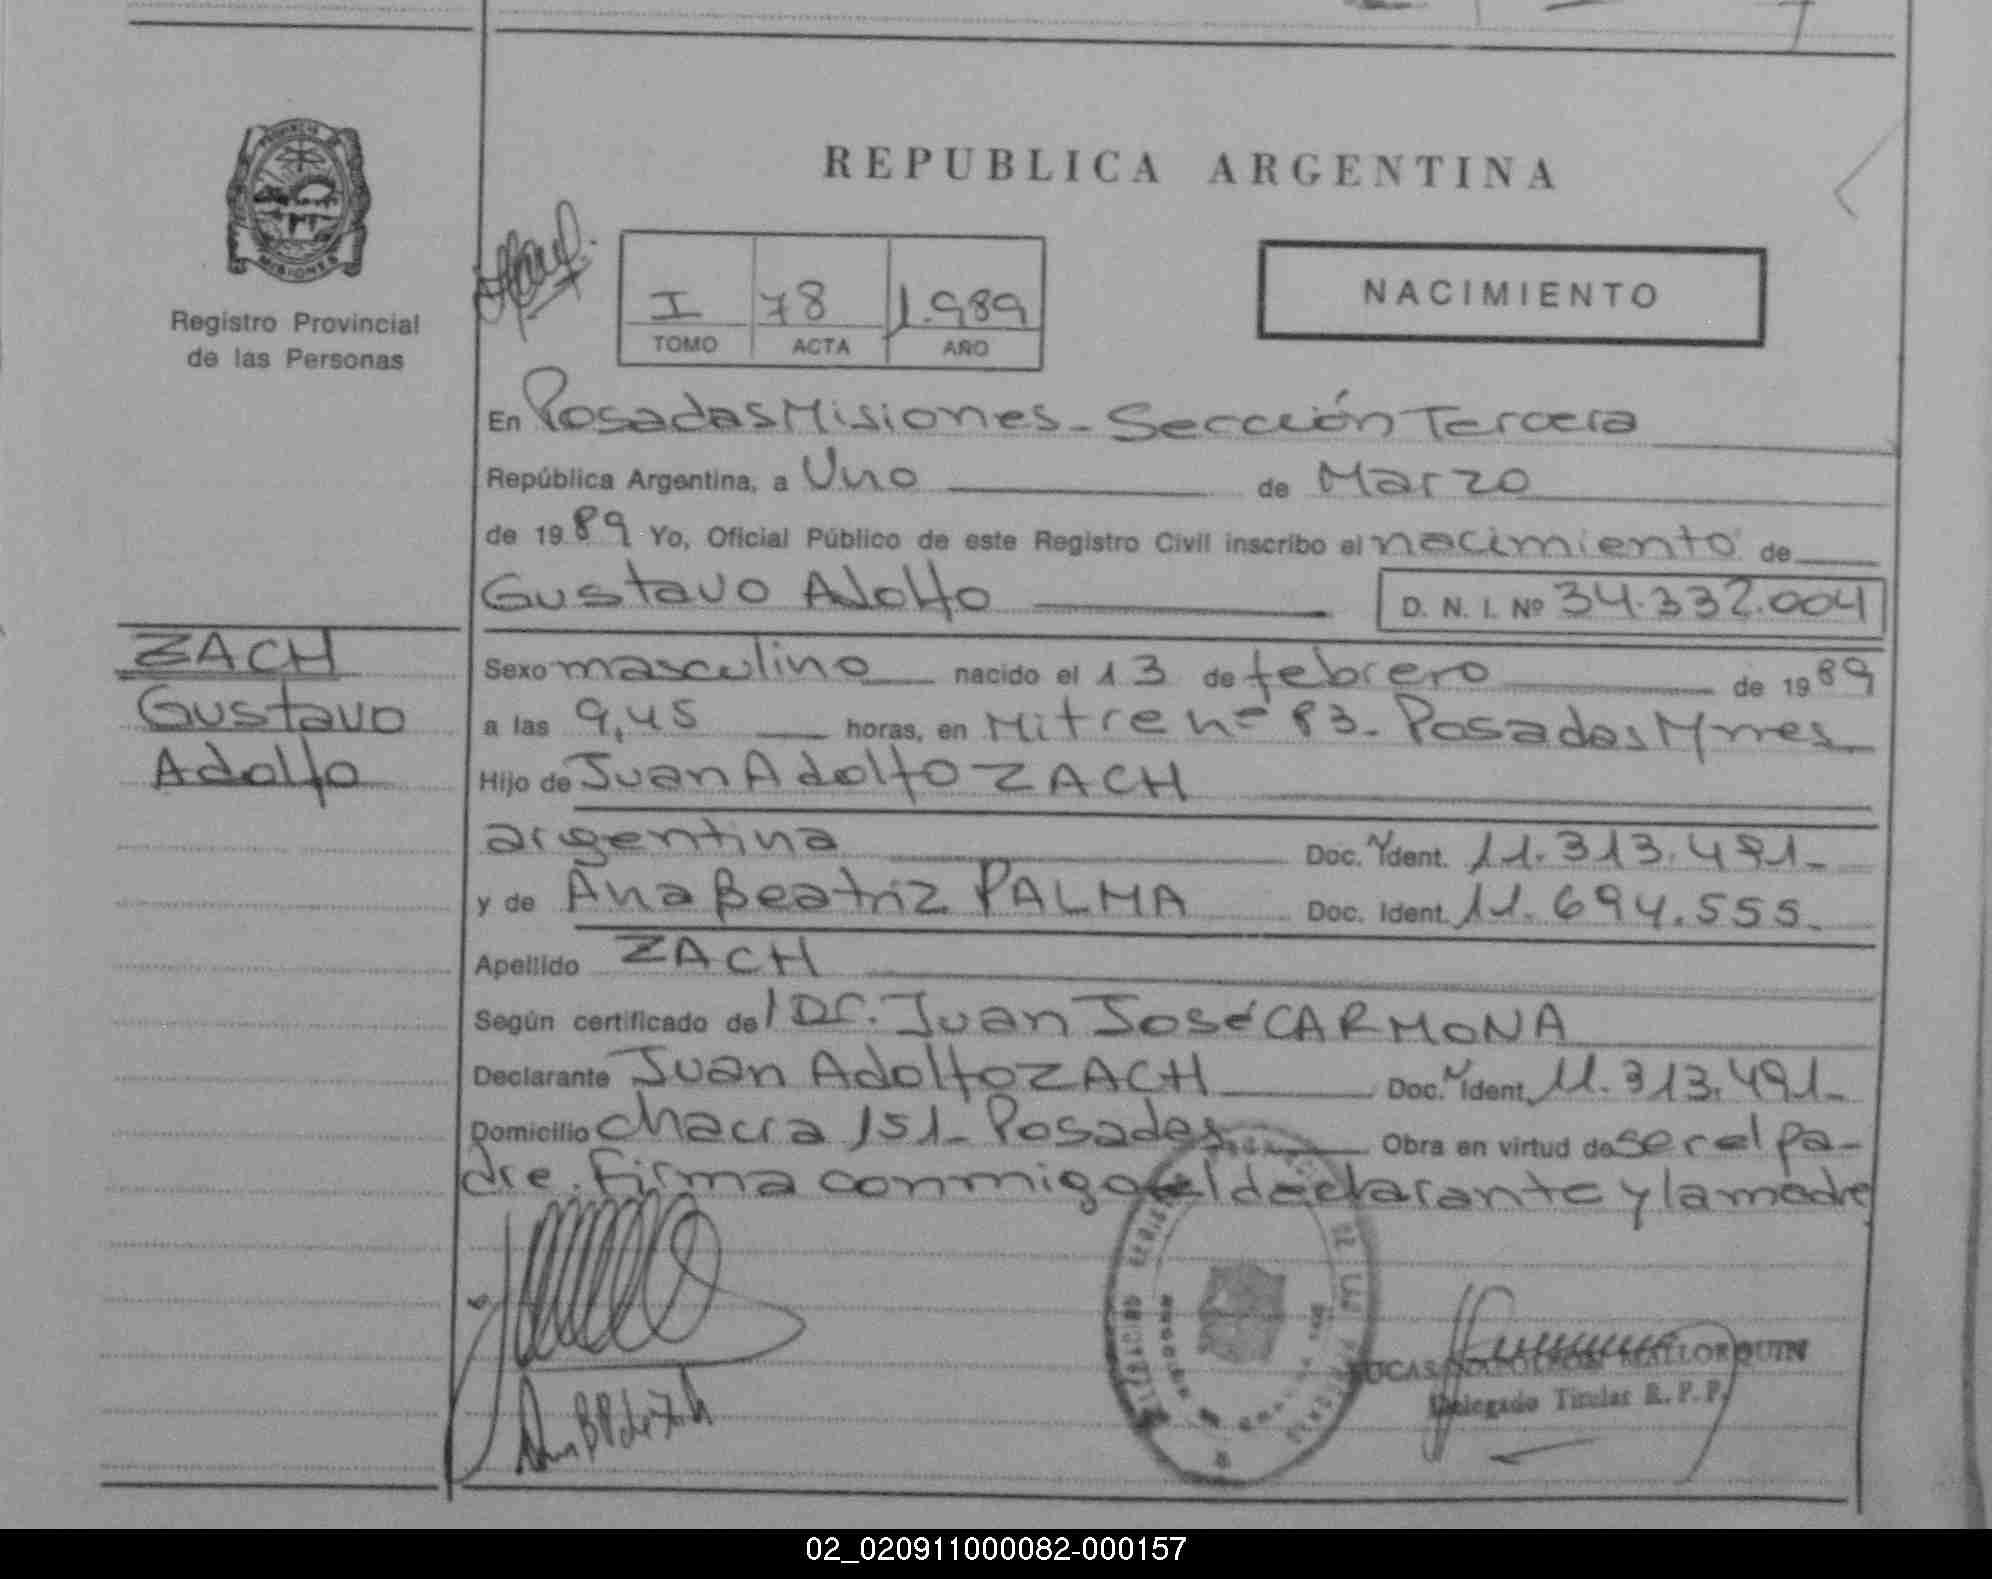 PROVINCIA DE
MISIONES
Registro Provincial
de las Personas
REPUBLICA ARGENTINA
I 78 1.989
TOMO ACTA AÑO
NACIMIENTO
En Posadas Misiones - Sección Tercera
República Argentina, a Uno de Marzo
de 1989 Yo, Oficial Público de este Registro Civil inscribo el nacimiento de
Gustavo Adolfo D. N. I. Nº 34.332.004
ZACH
Gustavo
Adolfo
Sexo masculino nacido el 13 de febrero de 1989
a las 9,45 horas, en Mitre nº 83 - Posadas Mnes
Hijo de Juan Adolfo ZACH
argentina Doc. Ident. 11.313.491-
y de Ana Beatriz PALMA Doc. Ident. 11.694.555.
Apellido ZACH
Según certificado del Dr. Juan José CARMONA
Declarante Juan Adolfo ZACH Doc. Ident. 11.313.491-
Domicilio chacra 151 - Posadas Obra en virtud de ser el pa-
dre. Firma conmigo el declarante y la madre
LUCAS NAPOLEON MALLORQUIN
Delegado Titular R. P. P.
02_020911000082-000157